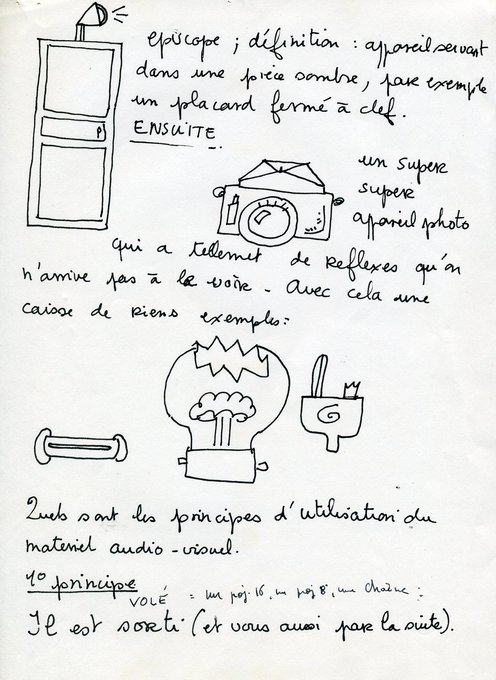 épiscope ; définition : appareil servant
dans une pièce sombre, par exemple
un placard fermé à clef.
ENSUITE.
un super
super
appareil photo
qui a tellement de reflexes qu'on
n'arrive pas à le voir - Avec cela une
caisse de riens exemples :
G
Quels sont les principes d'utilisation du
materiel audio-visuel.
1° principe
VOLÉ = un proj. 16, un proj 8, une chaîne :
Il est sorti (et vous aussi par la suite).